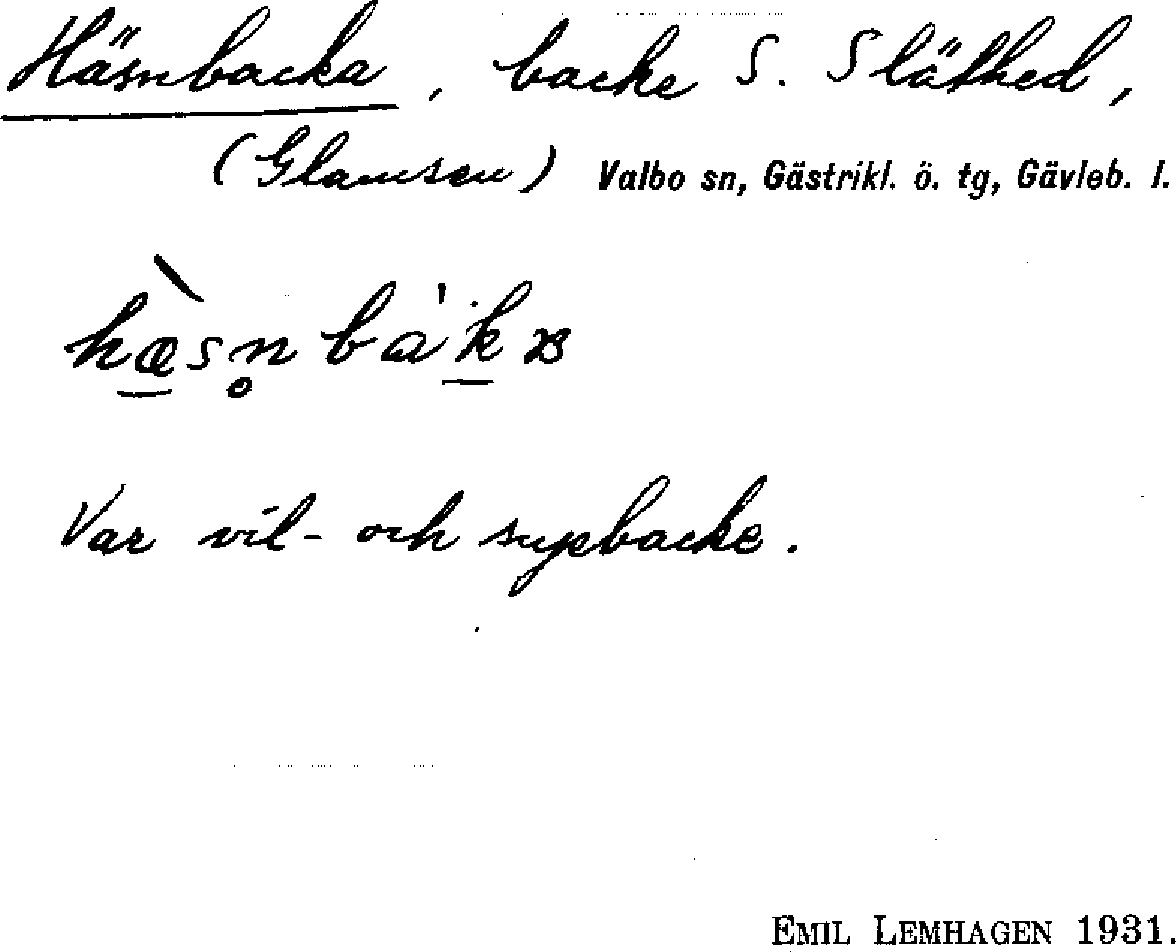 Häsnbacka, backe S. Släthed,
(Glamsen) Valbo sn, Gästrikl. ö. tg, Gävleb. l.
hæ̀sn̥bàkɐ
Var vil- och supbacke.
EMIL LEMHAGEN 1931.